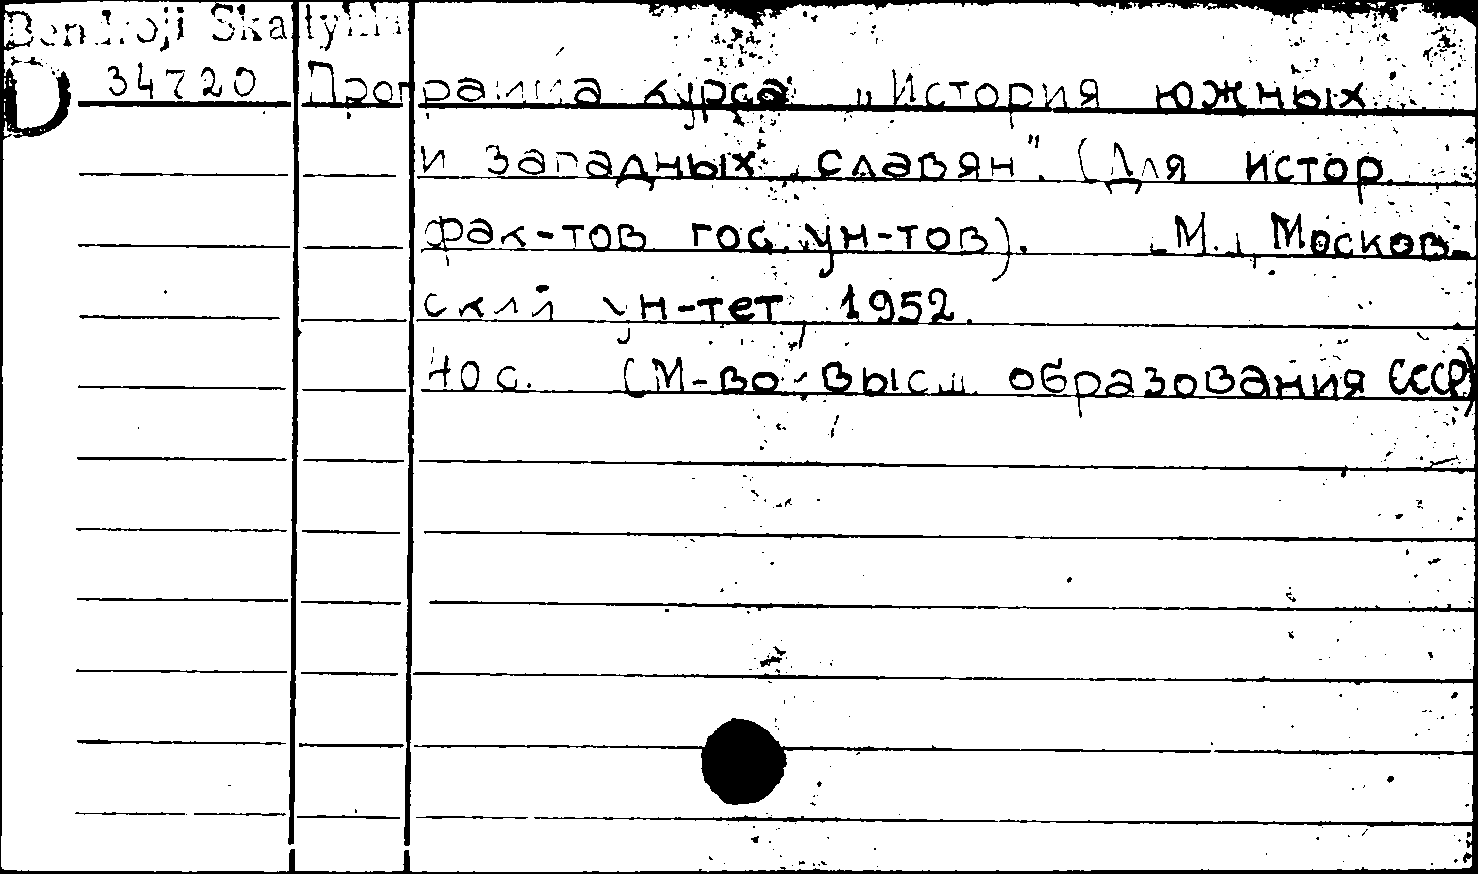 Bendroji Skaitykla
D 34720 Программа курса „История южных
и западных славян". (Для истор.
фак-тов гос. ун-тов). М., Москов-
ский ун-тет, 1952.
40 с. (М-во высш. образования СССР)